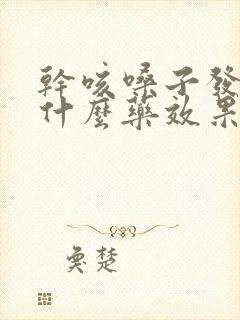 幹咳嗓子發
什麼藥效果
楚